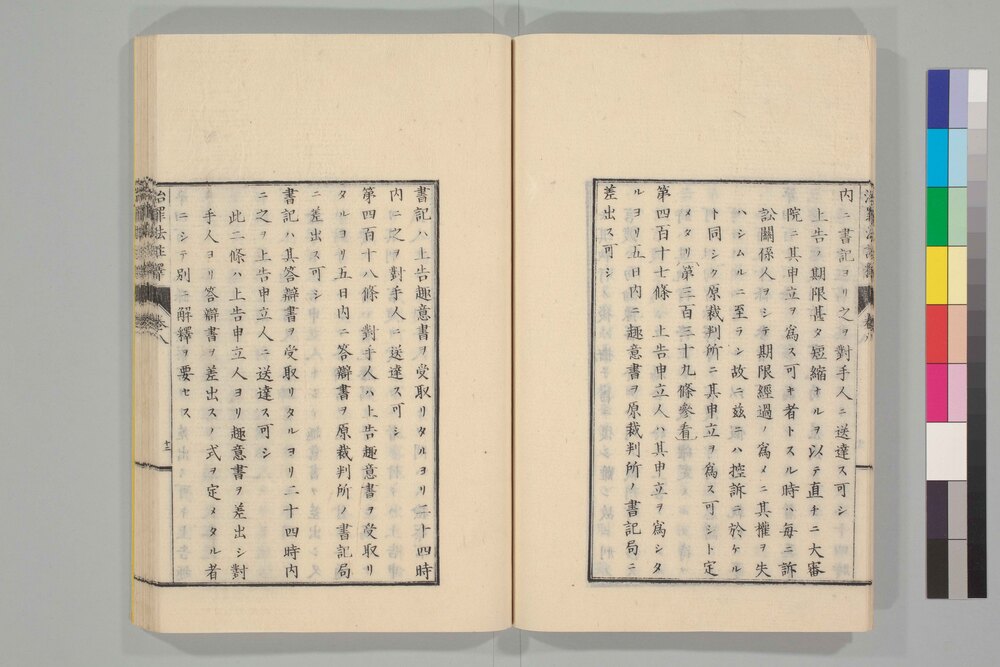 内ニ書記ヨリ之ヲ對手人ニ送達ス可シ
上告ノ期限甚タ短縮ナルヲ以テ直チニ大審
院ニ其申立ヲ爲ス可キ者トスル時ハ毎ニ訴
訟關係人ヲシテ期限經過ノ爲メニ其權ヲ失
ハシムルニ至ラン故ニ茲ニハ控訴ニ於ケル
ト同シク原裁判所ニ其申立ヲ爲ス可シト定
メタリ第三百三十九條參看
第四百十七條 上告申立人ハ其申立ヲ爲シタ
ルヨリ五日内ニ趣意書ヲ原裁判所ノ書記局ニ
差出ス可シ
書記ハ上告趣意書ヲ受取リタルヨリ二十四時
内ニ之ヲ對手人ニ送達ス可シ
第四百十八條 對手人ハ上告趣意書ヲ受取リ
タルヨリ五日内ニ答辯書ヲ原裁判所ノ書記局
ニ差出ス可シ
書記ハ其答辯書ヲ受取リタルヨリ二十四時内
ニ之ヲ上告申立人ニ送達ス可シ
此二條ハ上告申立人ヨリ趣意書ヲ差出シ對
手人ヨリ答辯書ヲ差出スノ式ヲ定メタル者
ニシテ別ニ解釋ヲ要セス
治罪法註釋 卷八